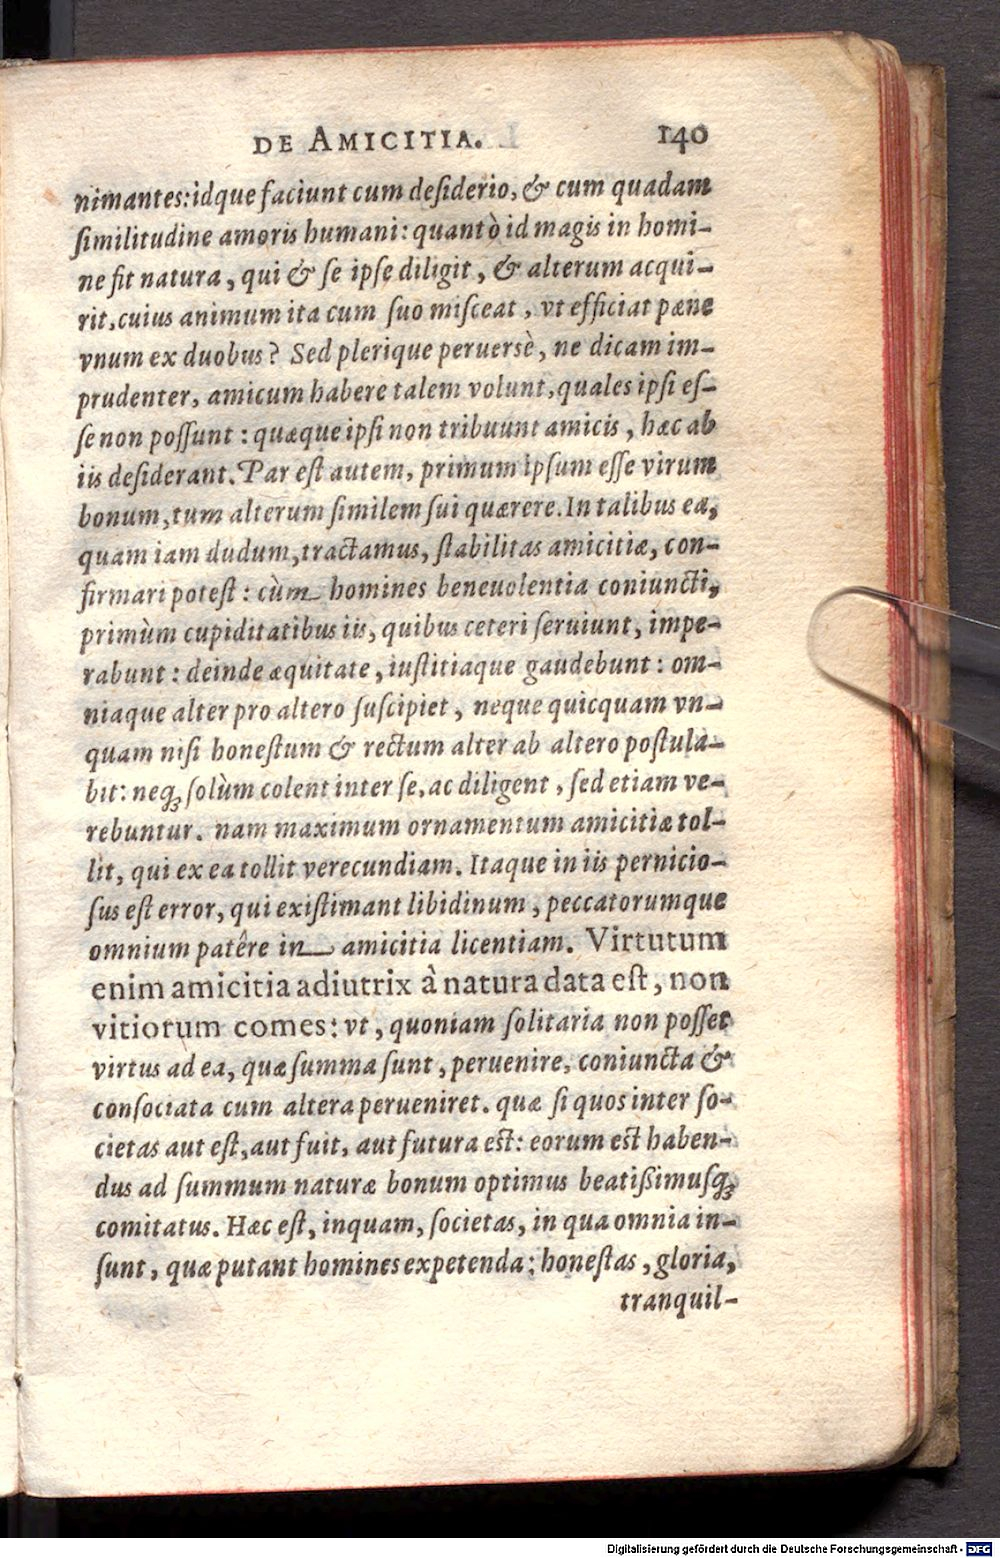 DE AMICITIA. 140
nimantes: idque faciunt cum desiderio, & cum quadam
similitudine amoris humani: quantò id magis in homi-
ne fit natura, qui & se ipse diligit, & alterum acqui-
rit, cuius animum ita cum suo misceat, vt efficiat pæne
vnum ex duobus? Sed plerique peruersè, ne dicam im-
prudenter, amicum habere talem volunt, quales ipsi es-
se non possunt: quæque ipsi non tribuunt amicis, hæc ab
iis desiderant. Par est autem, primum ipsum esse virum
bonum, tum alterum similem sui quærere. In talibus ea,
quam iam dudum, tractamus, stabilitas amicitiæ, con-
firmari potest: cùm homines beneuolentia coniuncti,
primùm cupiditatibus iis, quibus ceteri seruiunt, impe-
rabunt: deinde æquitate, iustitiaque gaudebunt: om-
niaque alter pro altero suscipiet, neque quicquam vn-
quam nisi honestum & rectum alter ab altero postula-
bit: neq; solùm colent inter se, ac diligent, sed etiam ve-
rebuntur. nam maximum ornamentum amicitiæ tol-
lit, qui ex ea tollit verecundiam. Itaque in iis pernicio-
sus est error, qui existimant libidinum, peccatorumque
omnium patêre in amicitia licentiam. Virtutum
enim amicitia adiutrix à natura data est, non
vitiorum comes: vt, quoniam solitaria non posset
virtus ad ea, quæ summa sunt, peruenire, coniuncta &
consociata cum altera perueniret. quæ si quos inter so-
cietas aut est, aut fuit, aut futura est: eorum est haben-
dus ad summum naturæ bonum optimus beatißimusq;
comitatus. Hæc est, inquam, societas, in qua omnia in-
sunt, quæ putant homines expetenda: honestas, gloria,
tranquil-
Digitalisierung gefördert durch die Deutsche Forschungsgemeinschaft - DFG